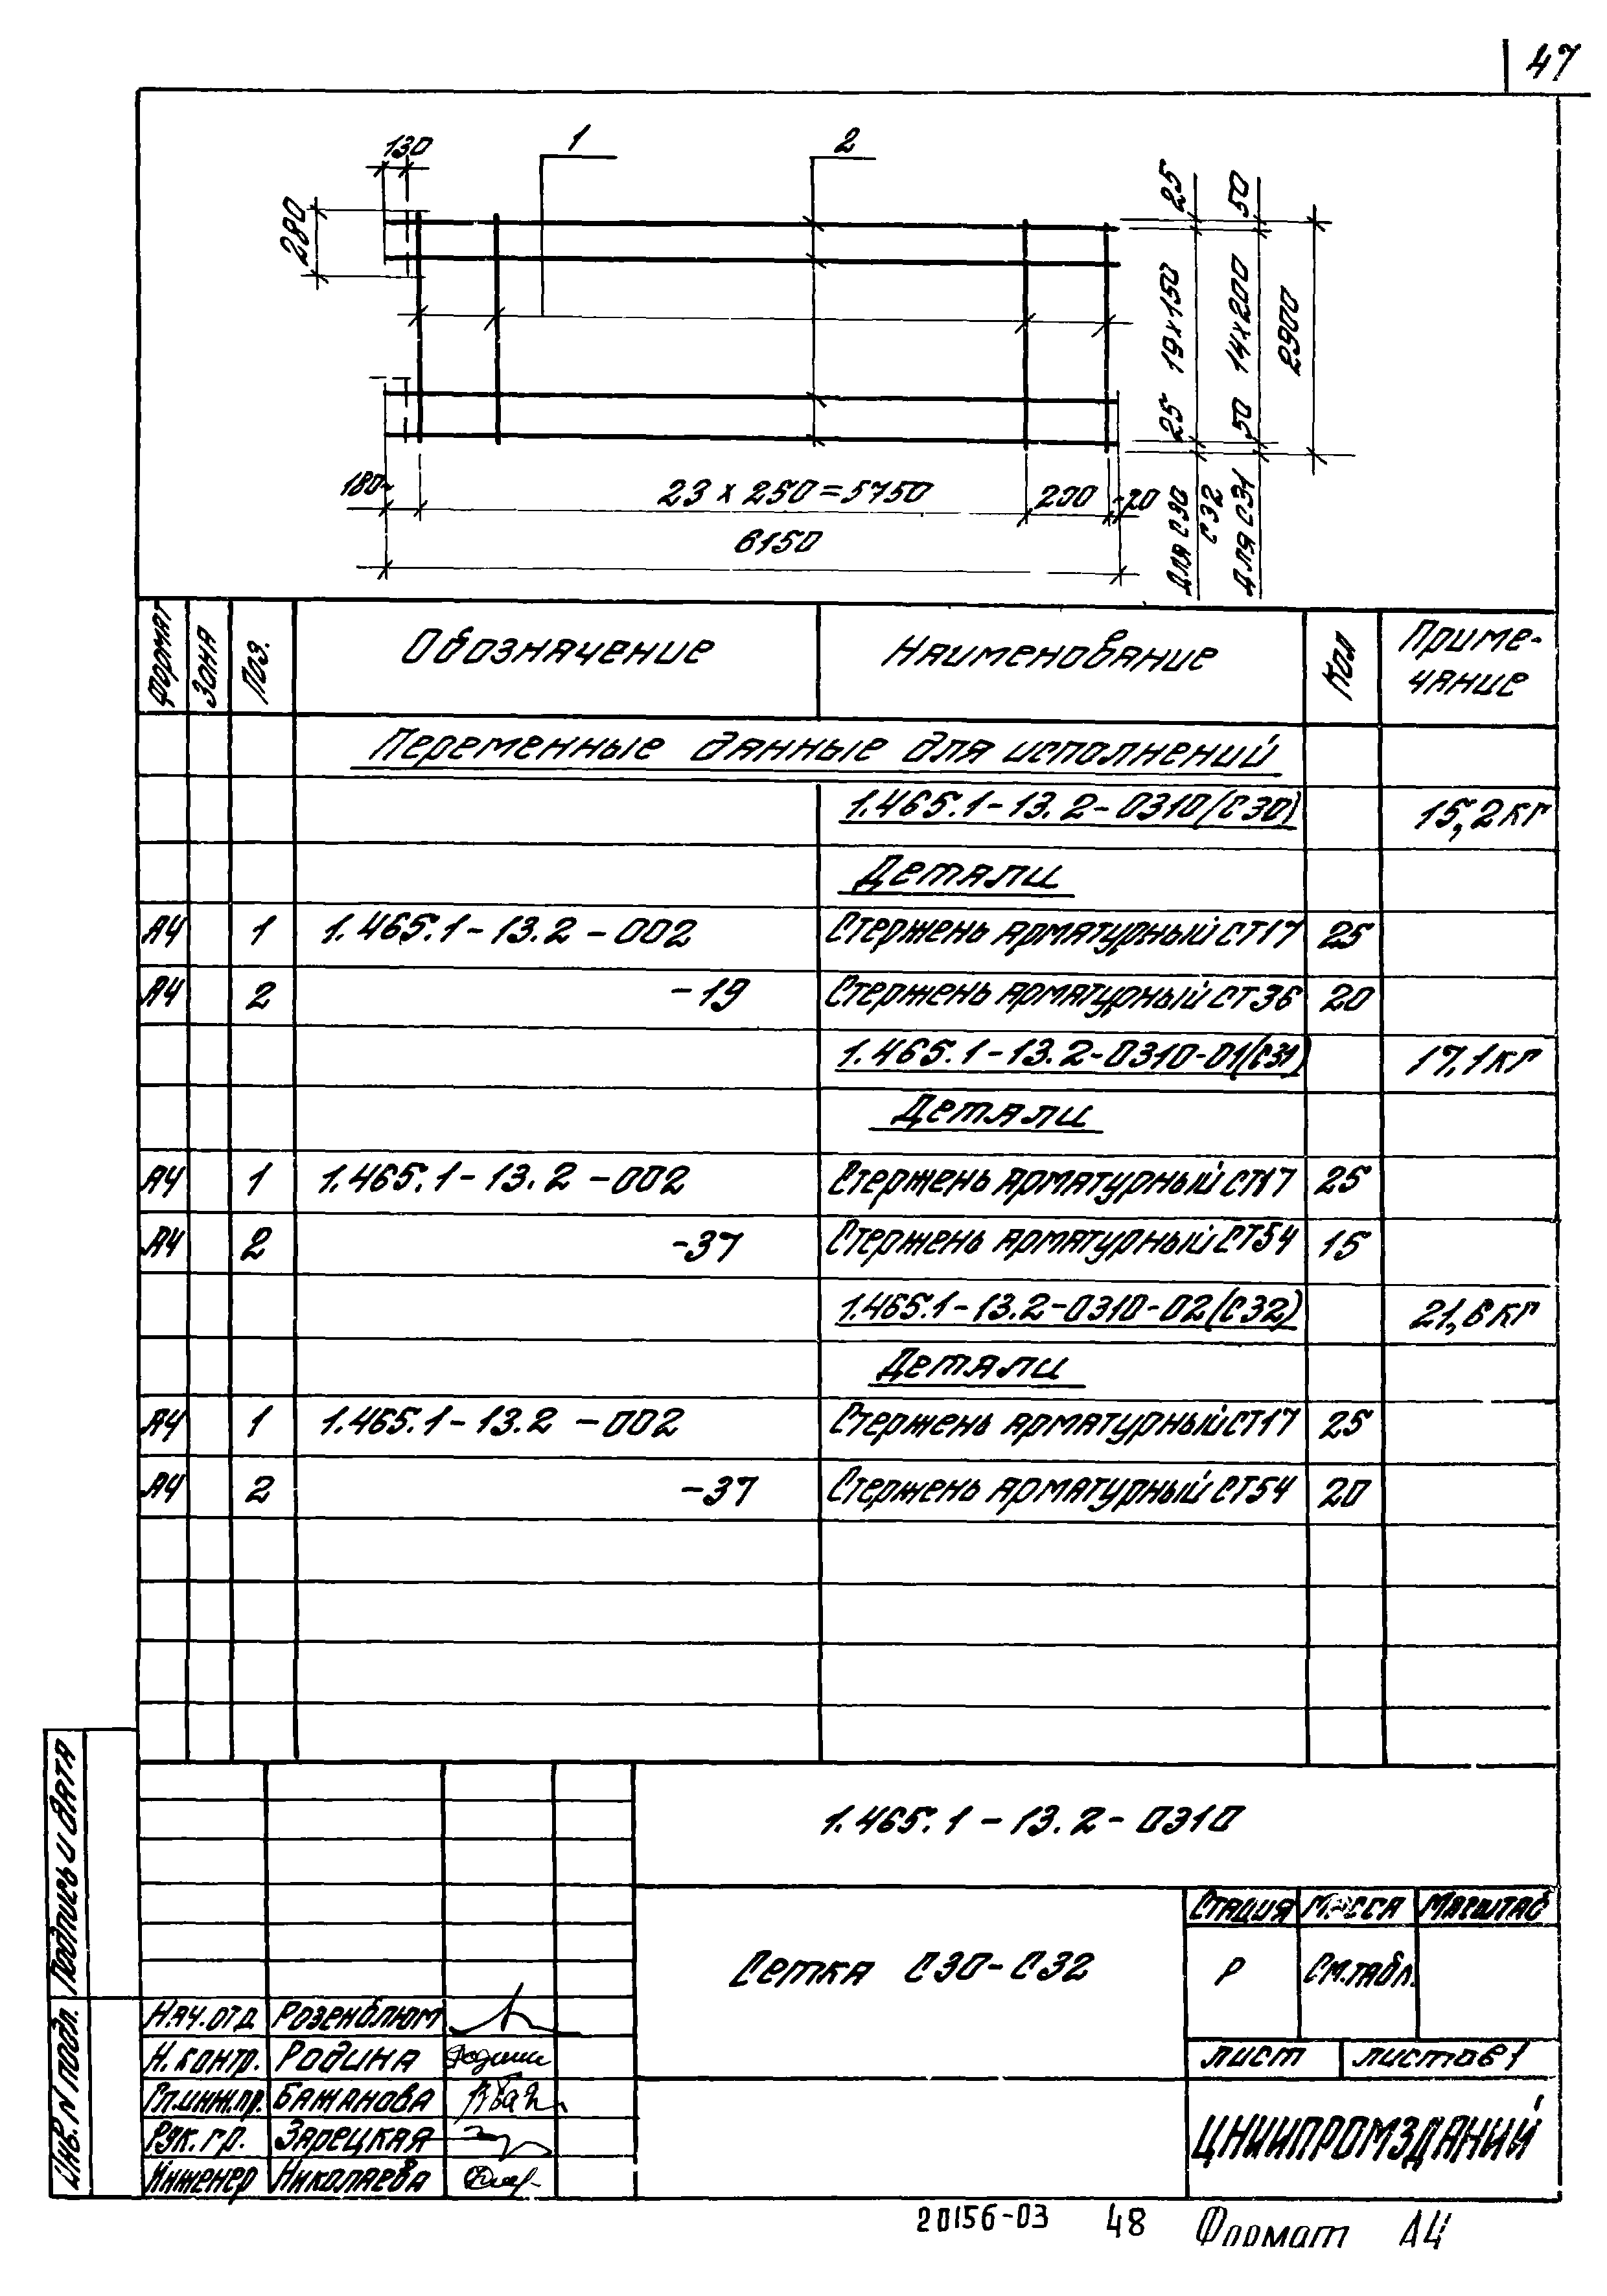 47
130
1
2
280
25
50
19х150
14х200
2900
25
50
180
23 х 250 = 5750
200
20
6150
для С30
С32
для С31
Формат
Зона
Поз.
Обозначение
Наименование
Кол
Приме-
чание
Переменные данные для исполнений
1.465.1-13.2-0310(С30)
15,2кг
Детали
А4 1 1.465.1-13.2-002 Стержень арматурный СТ17 25
А4 2 -19 Стержень арматурный СТ36 20
1.465.1-13.2-0310-01(С31)
17,1кг
Детали
А4 1 1.465.1-13.2-002 Стержень арматурный СТ17 25
А4 2 -37 Стержень арматурный СТ54 15
1.465.1-13.2-0310-02(С32)
21,6кг
Детали
А4 1 1.465.1-13.2-002 Стержень арматурный СТ17 25
А4 2 -37 Стержень арматурный СТ54 20
Подпись и дата
Инв. N подл.
1.465.1-13.2-0310
Сетка С30-С32
Стадия Масса Масштаб
Р См.табл.
лист листов 1
ЦНИИПРОМЗДАНИЙ
Нач.отд Розенблюм
Н.контр. Родина
Гл.инж.пр. Бажанова
Рук.гр. Зарецкая
Инженер Николаева
20156-03 48 Формат А4